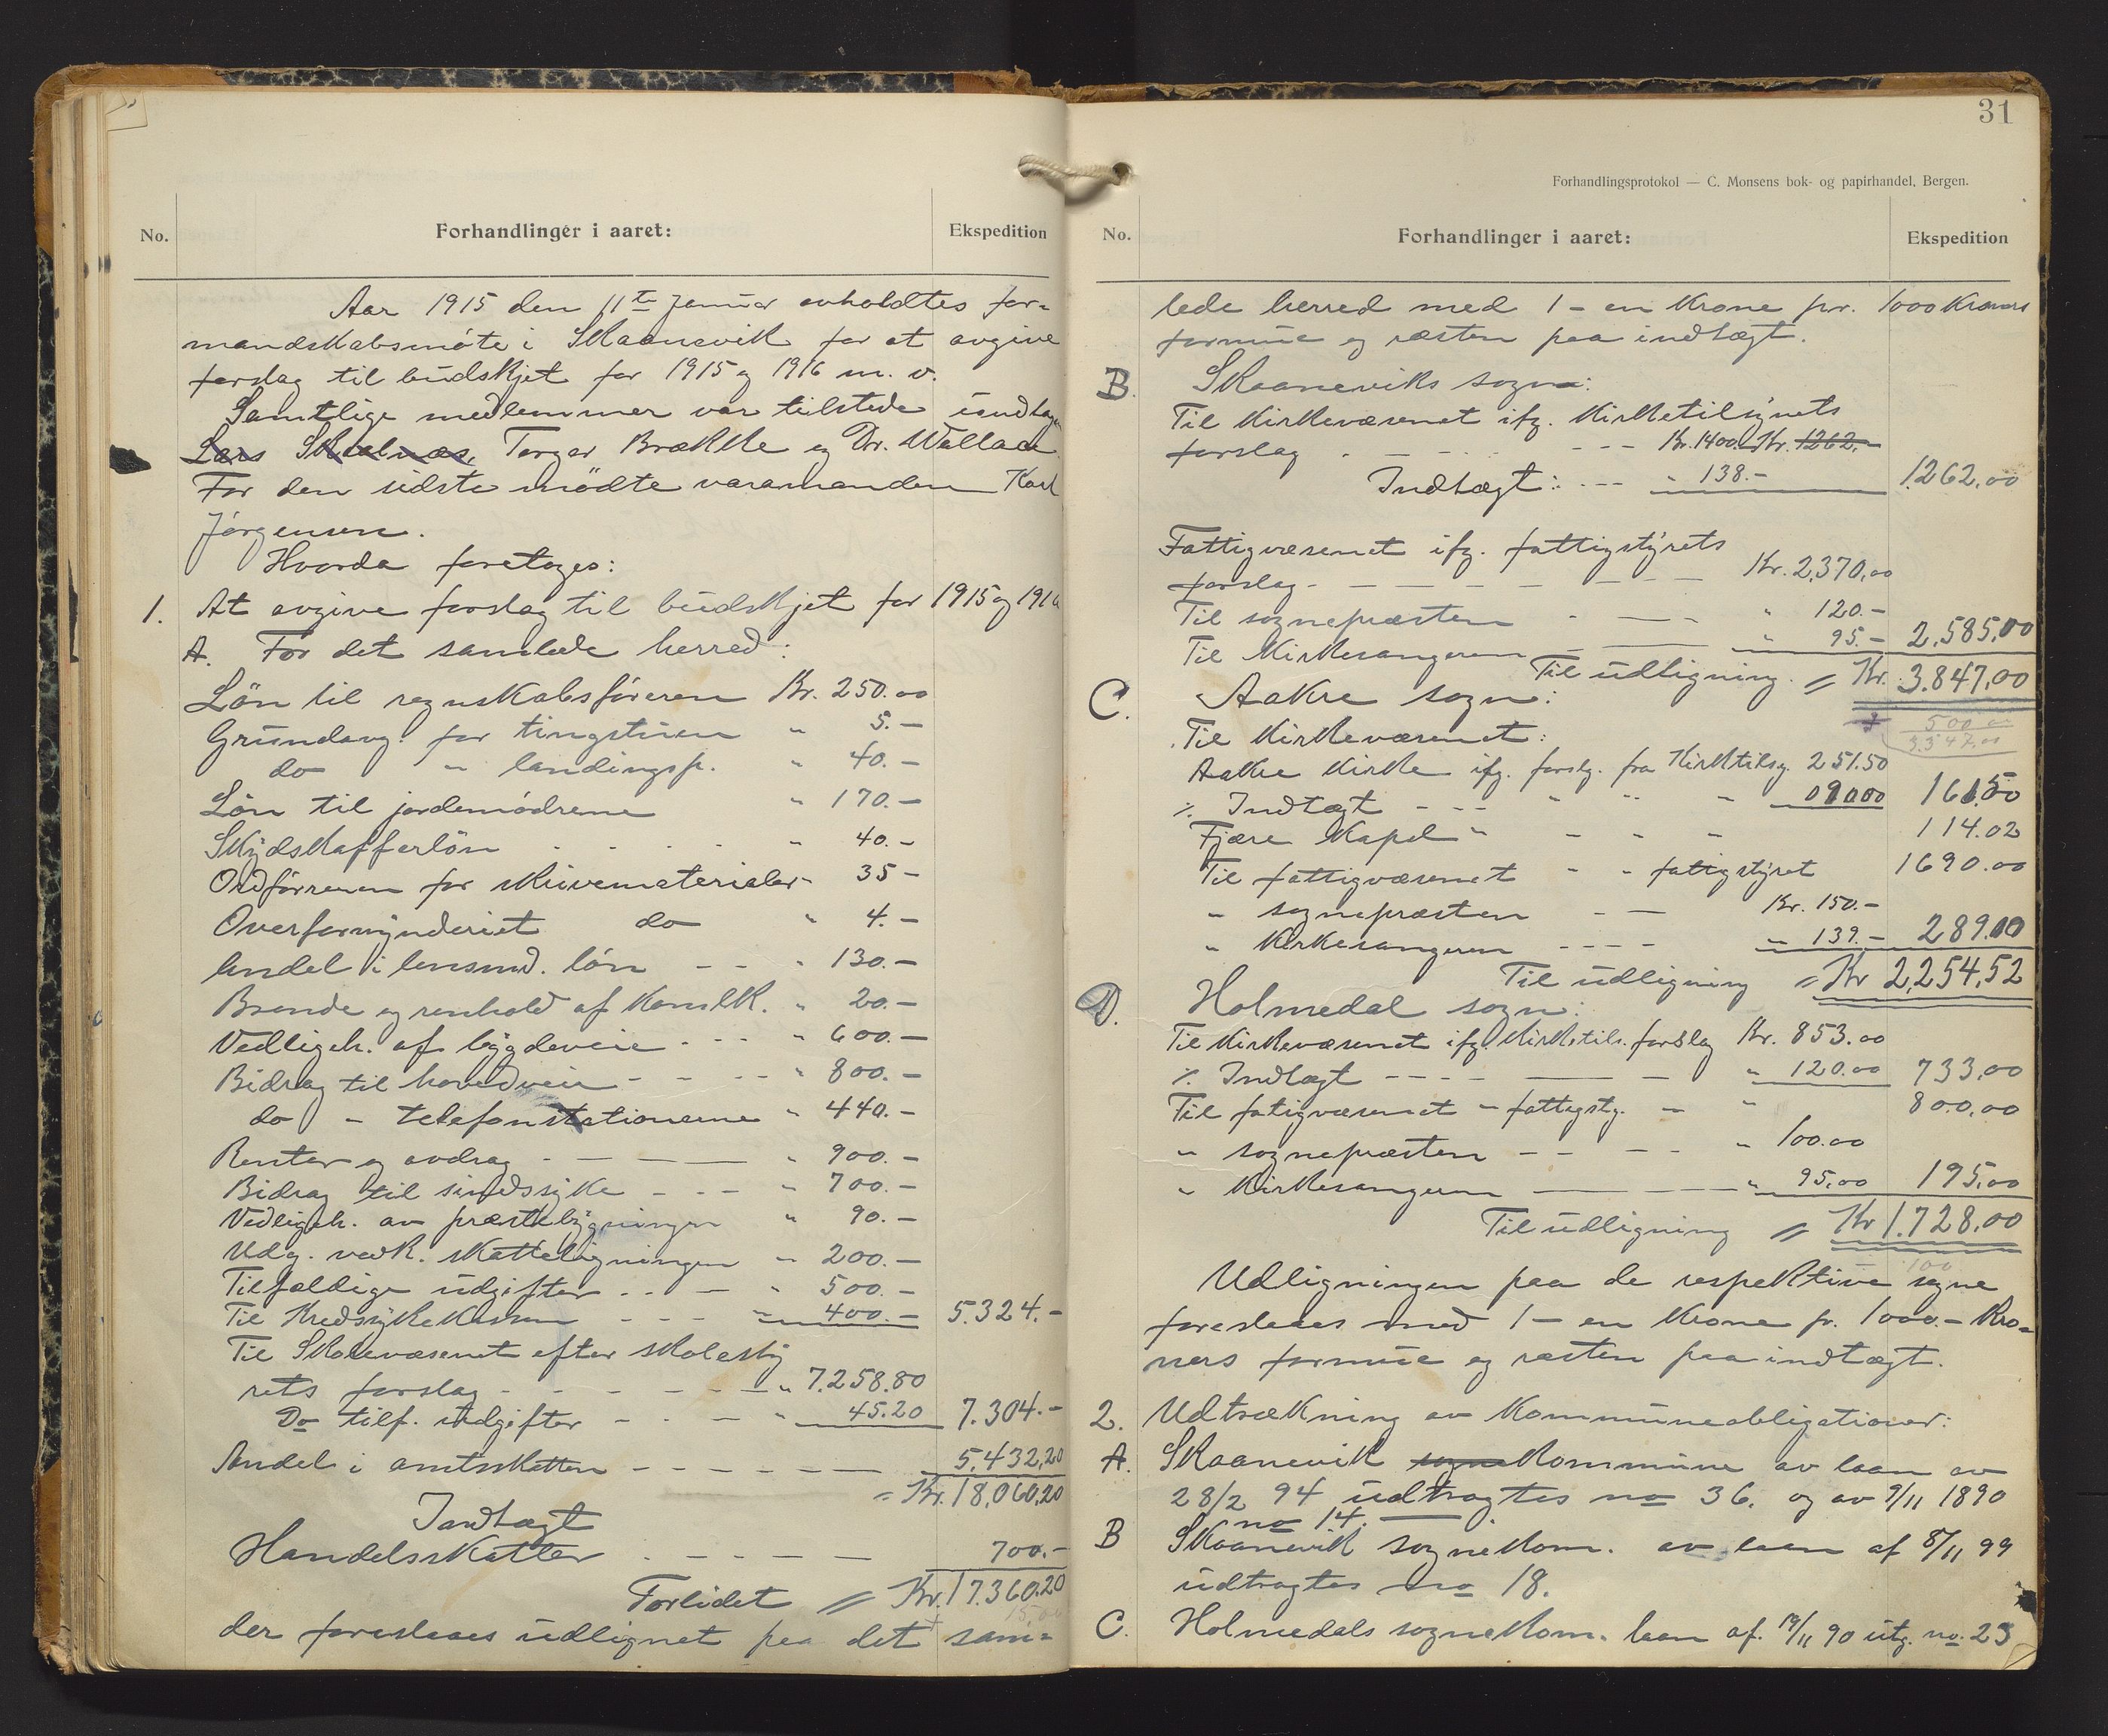 No.
Forhandlinger i aaret:
Ekspedition
Aar 1915 den 11te Januar avholdtes for-
mandskabsmöte i Skaanevik for at avgive
forslag til budskjet for 1915 og 1916 m. v.
Samtlige medlemmer var tilstede undtagen
Lars Skaalnæs, Torger Brække og Dr. Wallace
For den sidste mödte varamanden Karl
Jörgensen.
Hvorda foretoges:
1. At avgive forslag til budskjet for 1915 og 1916
A. For det samlede herred:
Lön til regnskabsföreren Kr. 250.00
Grundavg. for tingstuen " 5.-
do " landingspl. " 40.-
Lön til jordemödrene " 170.-
Skydskafferlön " 40.-
Ordföreren for skrivematerialer " 35-
Overformynderiet do " 4.-
Andel i lensmd. lön - - " 130.-
Brende og renhold af Komlk. " 20.-
Vedligeh. af bygdeveie - - - " 600.-
Bidrag til hovedveie - - - " 800.-
do - telefonstationerne " 440.-
Renter og avdrag - - - " 900.-
Bidrag til sindssyke - - - " 700.-
Vedligeh. av præstebygningen " 90.-
Udg. vedk. skatteligningen " 200.-
Tilfældige udgifter - - - " 500.-
Til Kredssykekassen - - - " 400.- 5.324.-
Til Skolevæsenet efter skolesty
rets forslag - - - - - - " 7.258.80
Do tilf. udgifter - - - " 45.20 7.304.-
Andel i amtsskatten - - - - - - 5.432,20
= Kr. 18,060,20
Indtægt
Handelsskatter - - - - - 700.-
Forlidet = Kr. 17.360.20
der foreslaaes udlignet paa det sam-
31
Forhandlingsprotokol — C. Monsens bok- og papirhandel, Bergen.
No.
Forhandlinger i aaret:
Ekspedition
lede herred med 1 - en Krone pr. 1000 Kroners
formue og resten paa indtægt.
B. Skaaneviks sogn:
Til Kirkevæsenet ifg. Kirketilsynets
forslag - - - - - Kr. 1400.- Kr. 1262.-
Indtægt: - - - " 138.- 1.262,00
Fattigvæsenet ifg. fattigstyrets
forslag - - - - - - - Kr. 2,370,00
Til sognepræsten - - - " 120.-
Til Kirkesangeren " 95.- 2.585,00
Til udligning = Kr. 3.847,00
500 00
3.347.00
C. Aakre sogn:
Til Kirkevæsenet:
Aakre Kirke ifg. forslg. fra Kirktilsy. 251.50
% Indtægt - - - " " - 09000 161.50
Fjære Kapel " - - - 114.02
Til fattigvæsenet - - fattigstyret 1690.00
" sognepræsten - - Kr. 150.-
" Kirkesangeren - - - - " 139.- 289.00
Til udligning = Kr 2,254,52
D. Holmedal sogn:
Til Kirkevæsenet ifg. Kirketils. forslag Kr. 853.00
% Indtægt - - - - - - " 120.00 733,00
Til fatigvæsenet - fattigsty. - " 800,00
" sognepræsten - - - - " 100.00
" Kirkesangeren - - " 95,00 195,00
Til udligning = Kr 1.728,00
100
Udligningen paa de respektive sogne
foreslaaes med 1 - en Krone pr. 1000.- Kro-
ners formue og resten paa indtægt.
2. Udtrækning av Kommuneobligationer:
A. Skaanevik sogneKommune av laan av
28/2 94 udtragtes no 36. og av 9/11 1890
no 14.
B Skaanevik sognekom. av laan af 8/11 99
udtragtes no 18.
C. Holmedals sognekom. laan af. 19/11 90 utg. no. 23